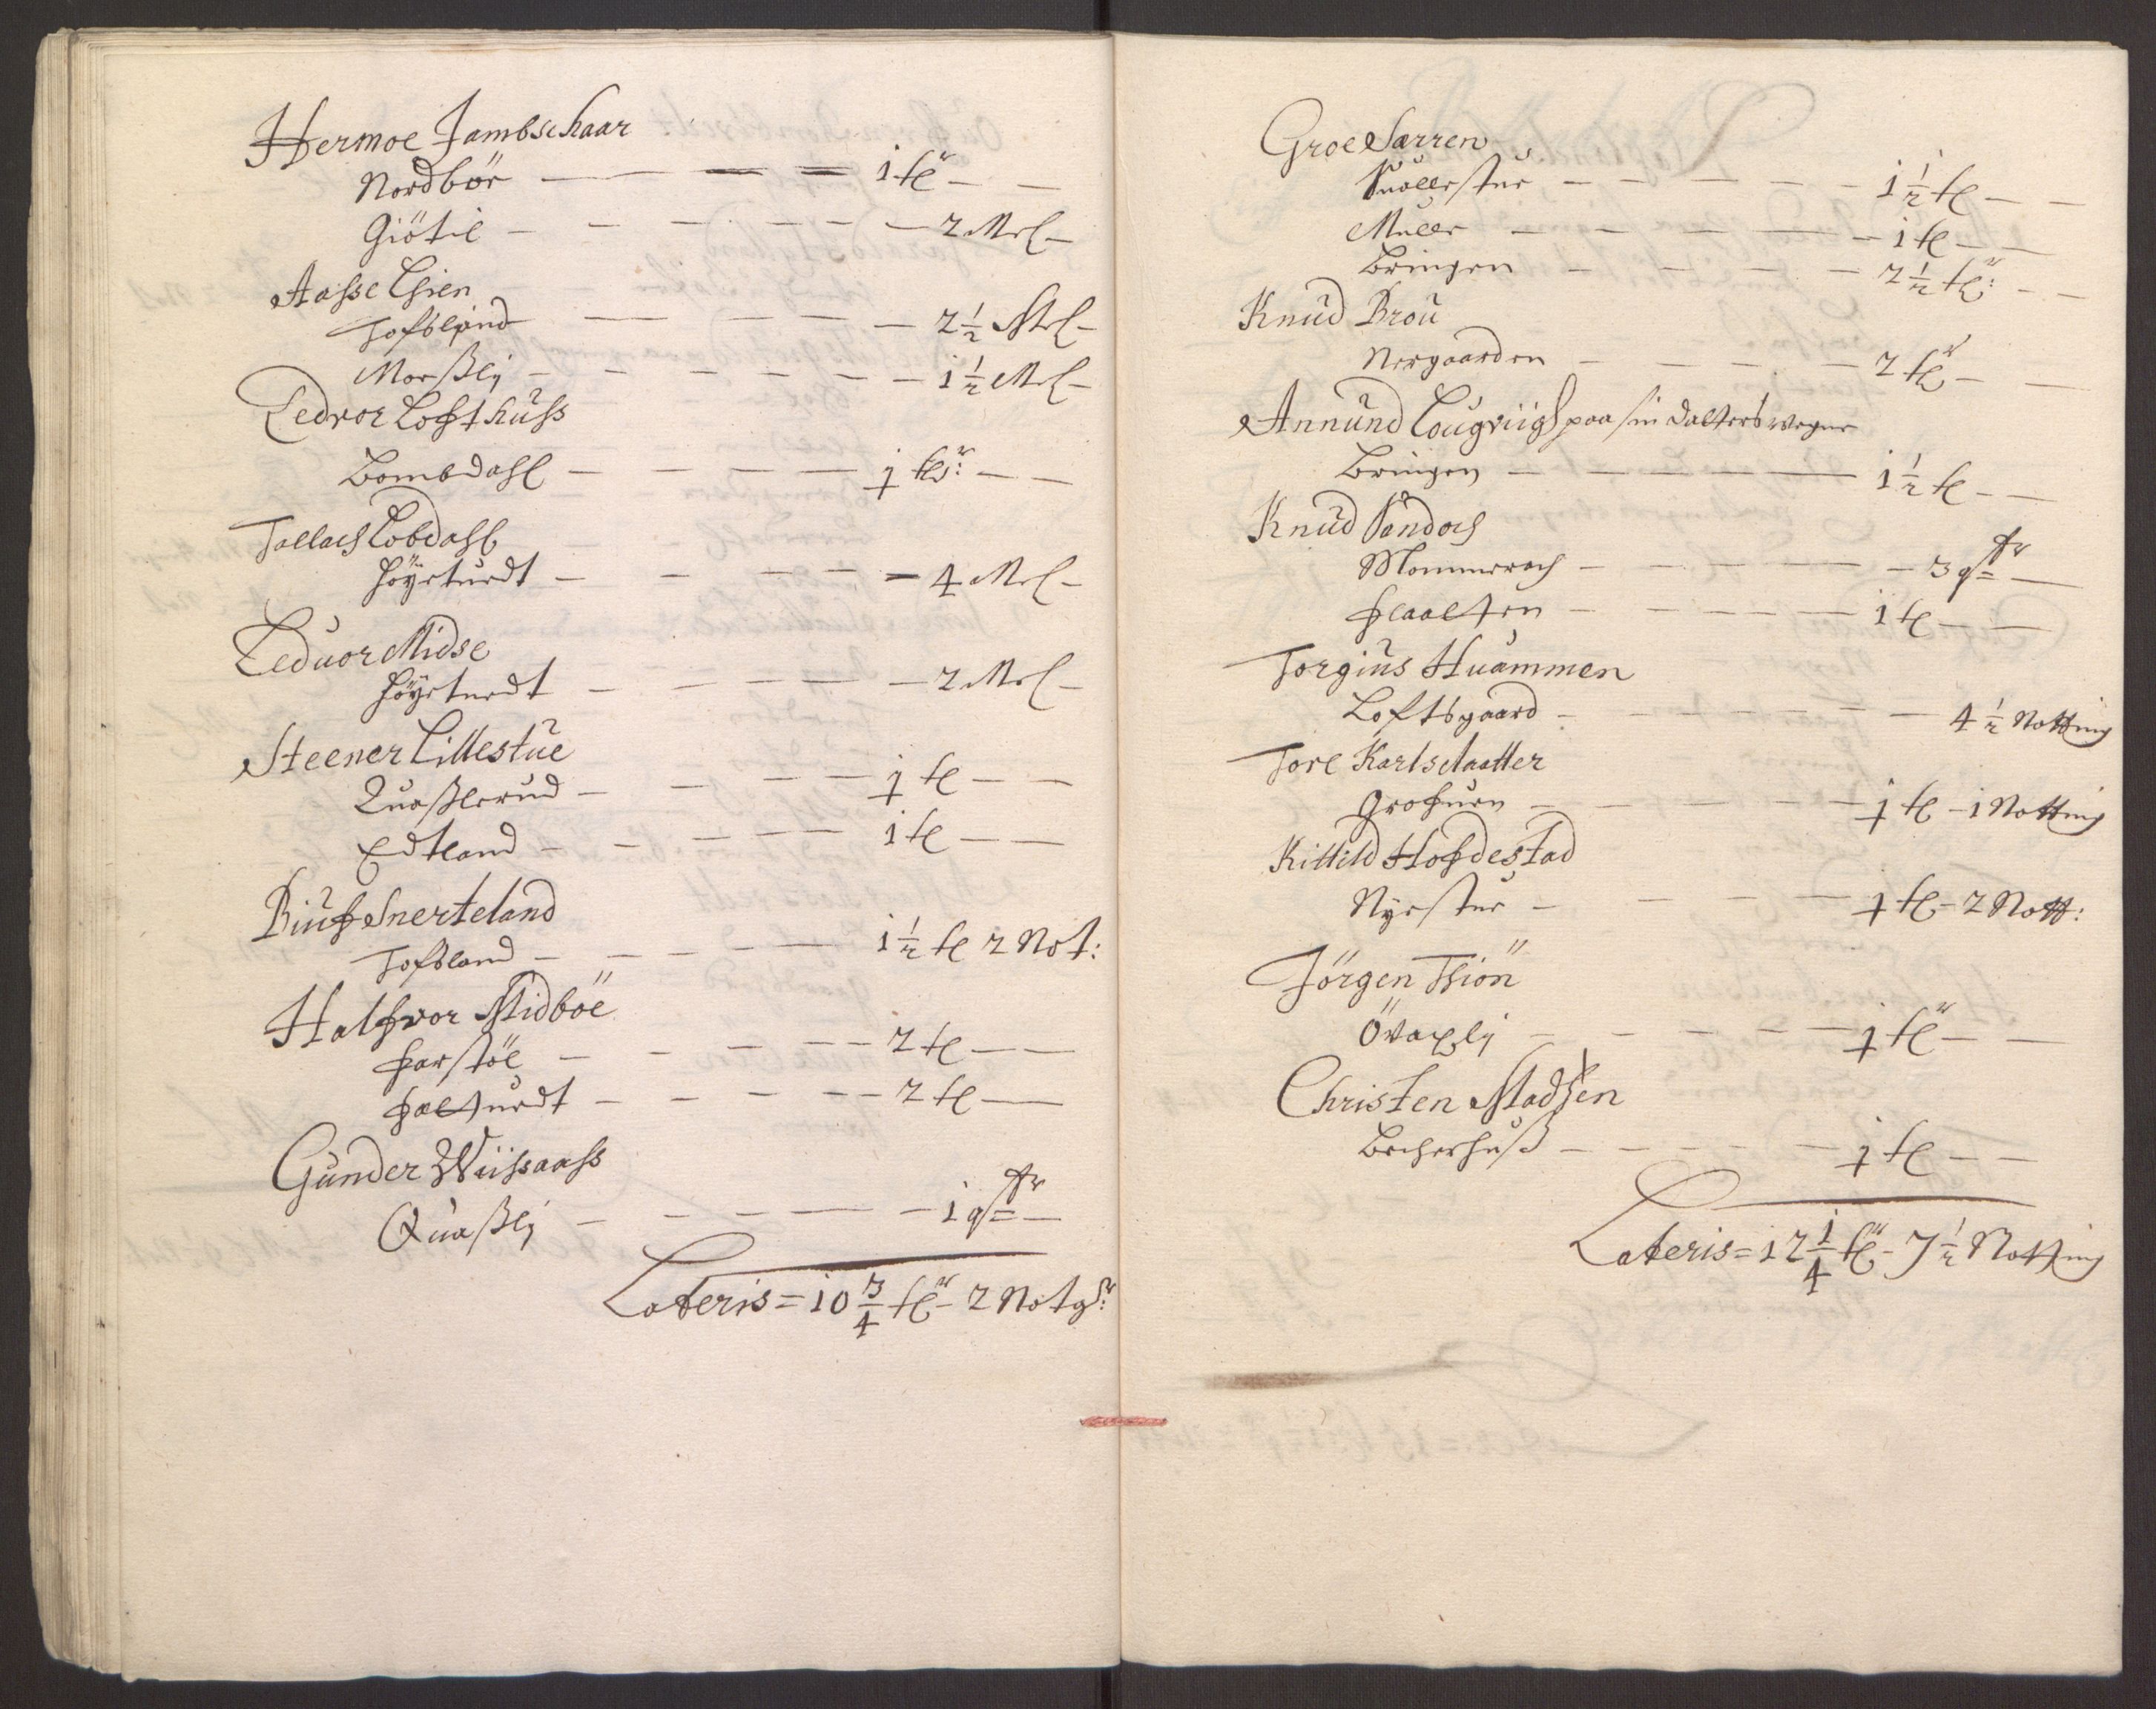 Hermoe Jambschaar
Nordböe — — — — 1 tl͠r — —
Giötil — — — — — 2 Mel —
Aasse Lien
Tofsland — — — — — 2 1/2 Mel —
Morßlij — — — — — 1 1/2 Mel —
Ledvor Lofthuss
Bombdahl — — — — 1 tlr: — —
Tallach Lobdahl
Höyetuedt — — — — 4 Mel —
Leduor Midse
Höyetuedt — — — — 2 Mel —
Steener Lillestue
Quaßlerud — — — — 1 tl — —
Edtland — — — — 1 tl — —
Biuf Snerteland
Tofsland — — — — 1 1/2 tl 2 Not:
Halfvor Midböe
Farstöl — — — — 2 tl — —
Faltuedt — — — — 2 tl —
Gunder Wiissaass
Quaßlij — — — — 1 qtr —
Lateris = 10 3/4 tlr — 2 Notgr:
Groe Særren
Suollestue — — — — 1 1/2 tl — —
Mülle — — — — 1 tl — —
Bringen — — — — 2 1/2 tlr: — —
Knud Brou
Nergaarden — — — — 2 tlr — —
Annund Lougviigh paa sin datters wegne
Bringen — — — — 1 1/2 tl — —
Knud Sandoch
Mommerach — — — — 3 qtr —
Flaalten — — — — 1 tl — —
Torgius Huammen
Loftsgaard — — — — 4 1/2 Notting
Tore Kartschaatter
Grofuen — — — — 1 tl — 1 Notting
Kittild Hofdestad
Nyestue — — — — 1 tl — 2 Nott:
Jörgen Tsiön
— — — — 1 tlr — —
Christen Madsen
Becherhuß — — — — 1 tl — —
Lateris = 12 1/4 tlr — 7 1/2 Notting